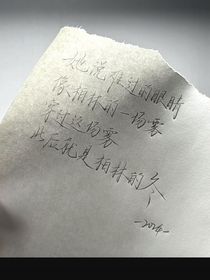 她说难过的眼睛
像柏林的一场雾
穿过这场雾
此后就是柏林的冬